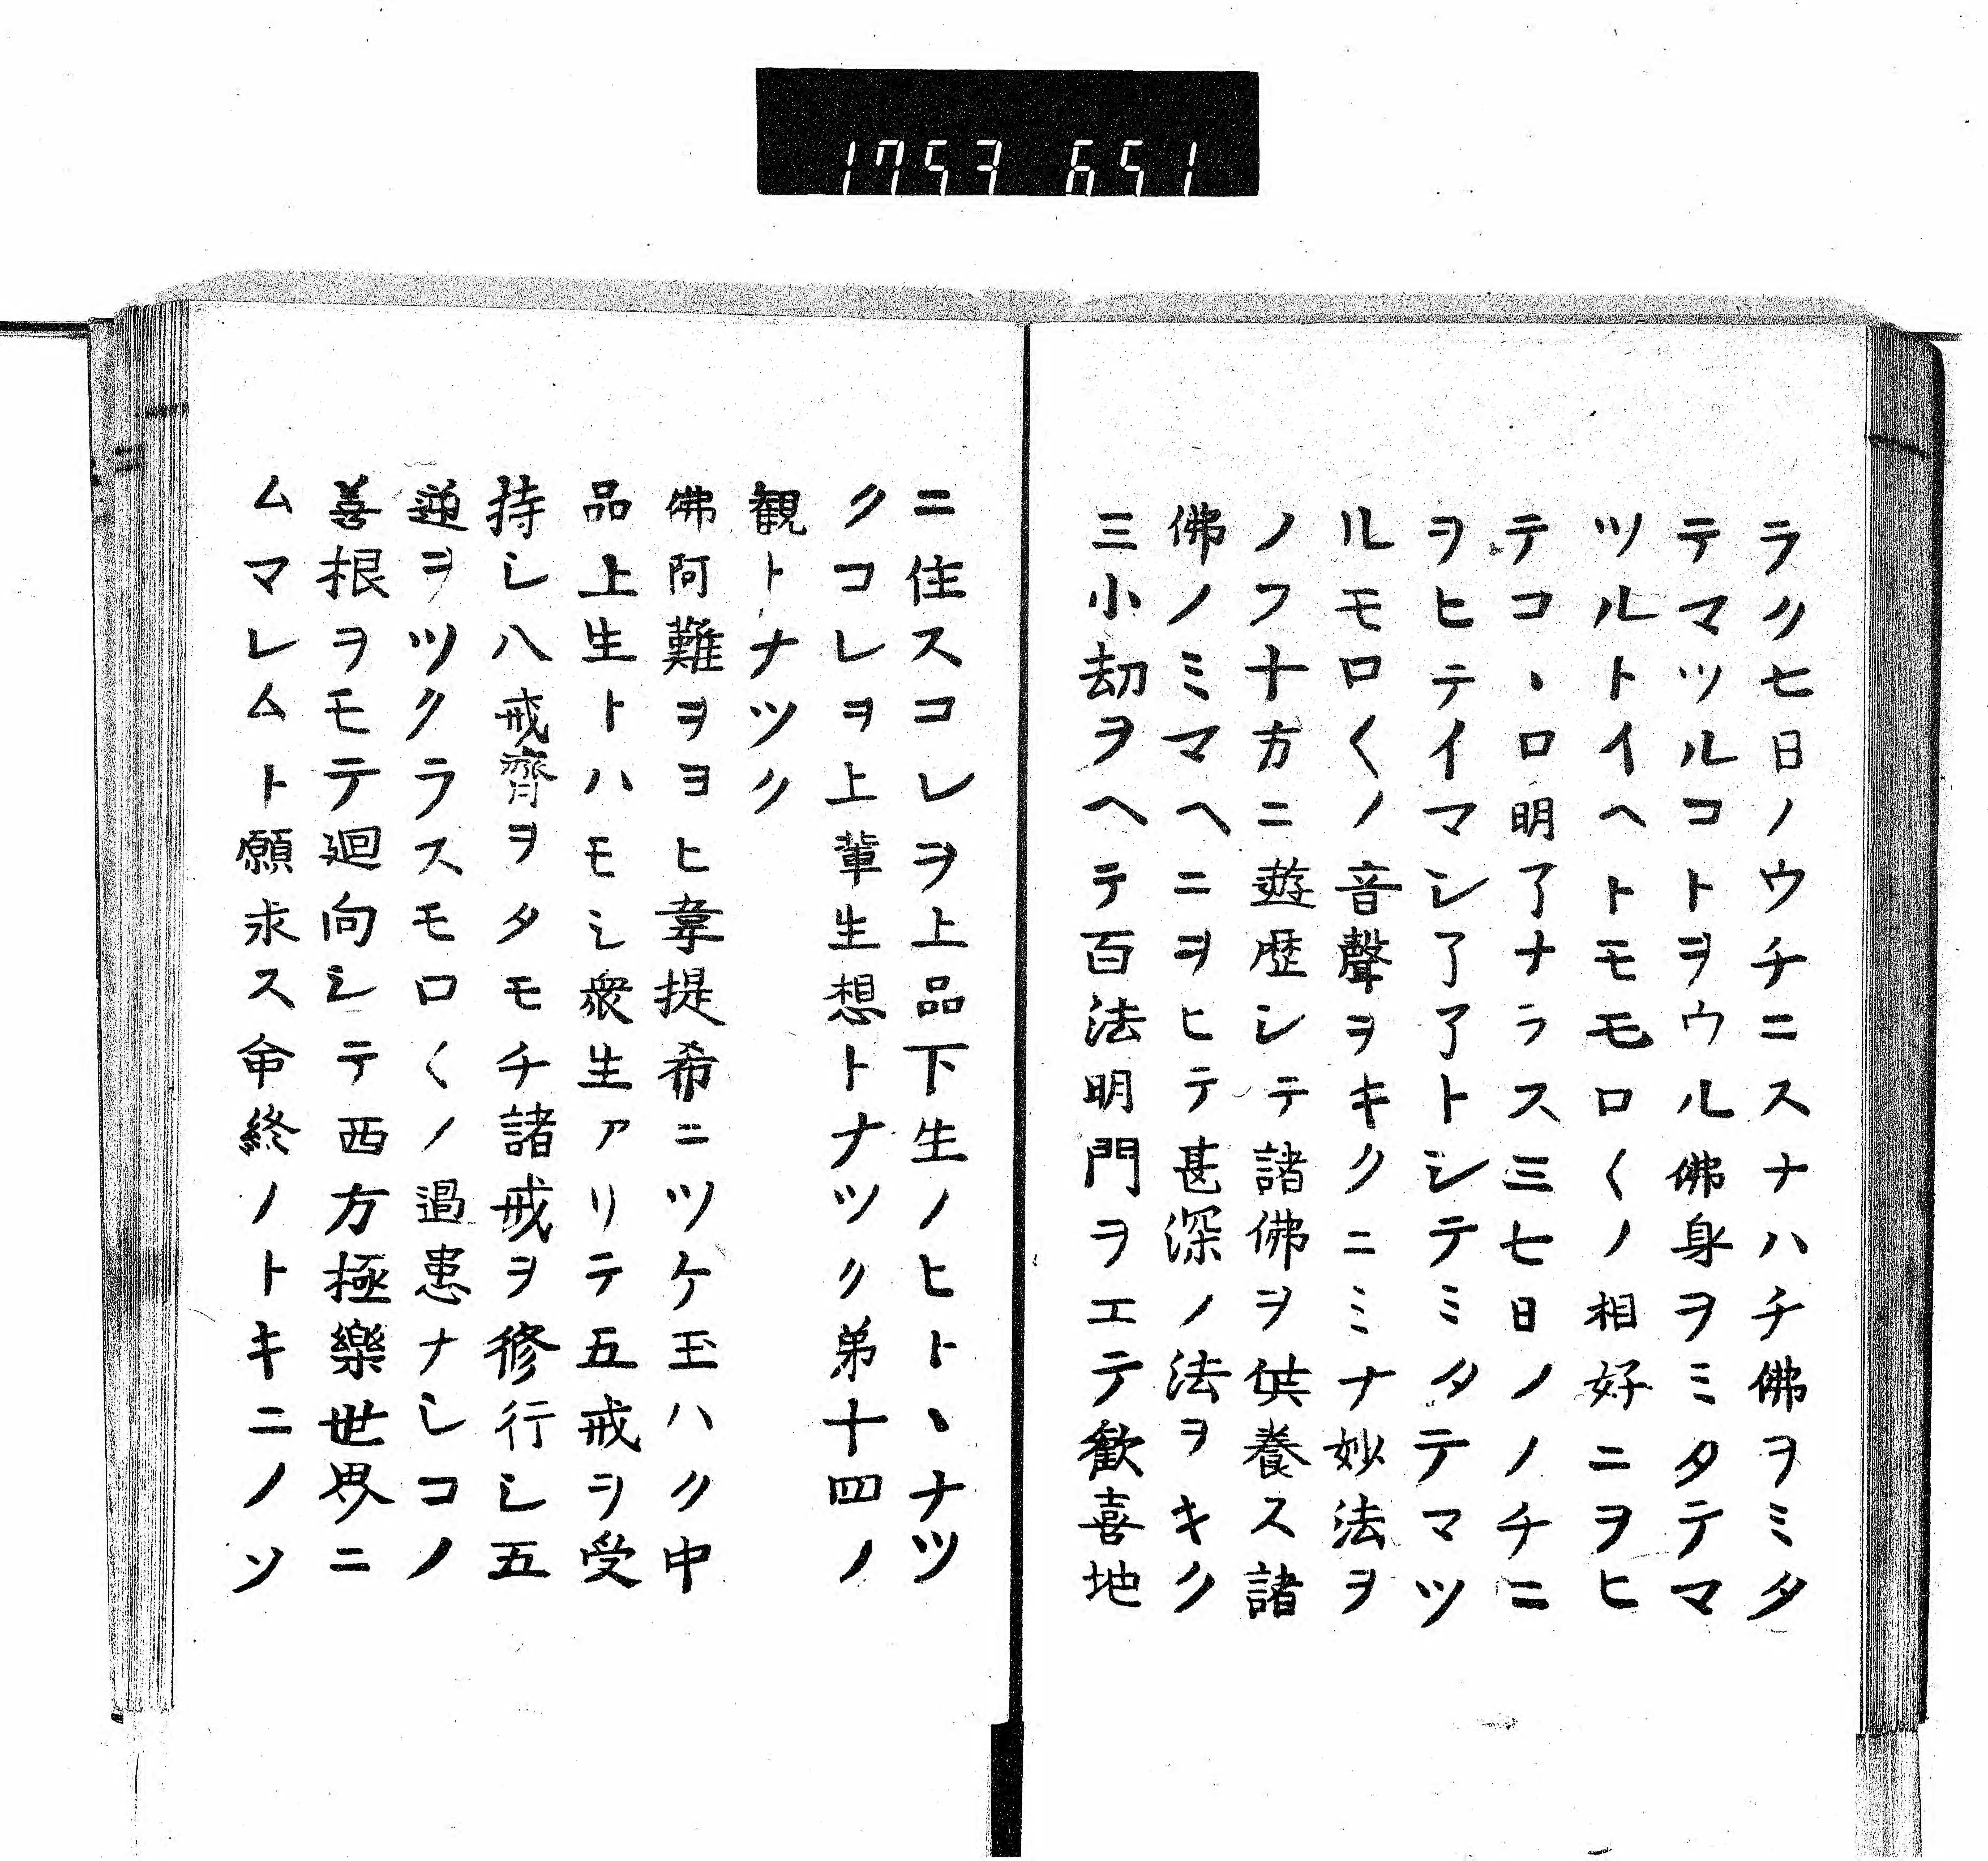 1753 651
ラク七日ノウチニスナハチ佛ヲミタ
テマツルコトヲウル佛身ヲミタテマ
ツルトイヘトモモロ〱ノ相好ニヲヒ
テコヽロ明了ナラス三七日ノノチニ
ヲヒテイマシ了了トシテミタテマツ
ルモロ〱ノ音聲ヲキクニミナ妙法ヲ
ノフ十方ニ遊歴シテ諸佛ヲ供養ス諸
佛ノミマヘニヲヒテ甚深ノ法ヲキク
三小劫ヲヘテ百法明門ヲエテ歓喜地
ニ住スコレヲ上品下生ノヒトヽナツ
クコレヲ上輩生想トナツク弟十四ノ
観トナツク
佛阿難ヲヨヒ韋提希ニツケ玉ハク中
品上生トハモシ衆生アリテ五戒ヲ受
持シ八戒齊ヲタモチ諸戒ヲ修行シ五
逆ヲツクラスモロ〱ノ過患ナシコノ
善根ヲモテ廻向シテ西方極樂世界ニ
ムマレムト願求ス命終ノトキニノソ